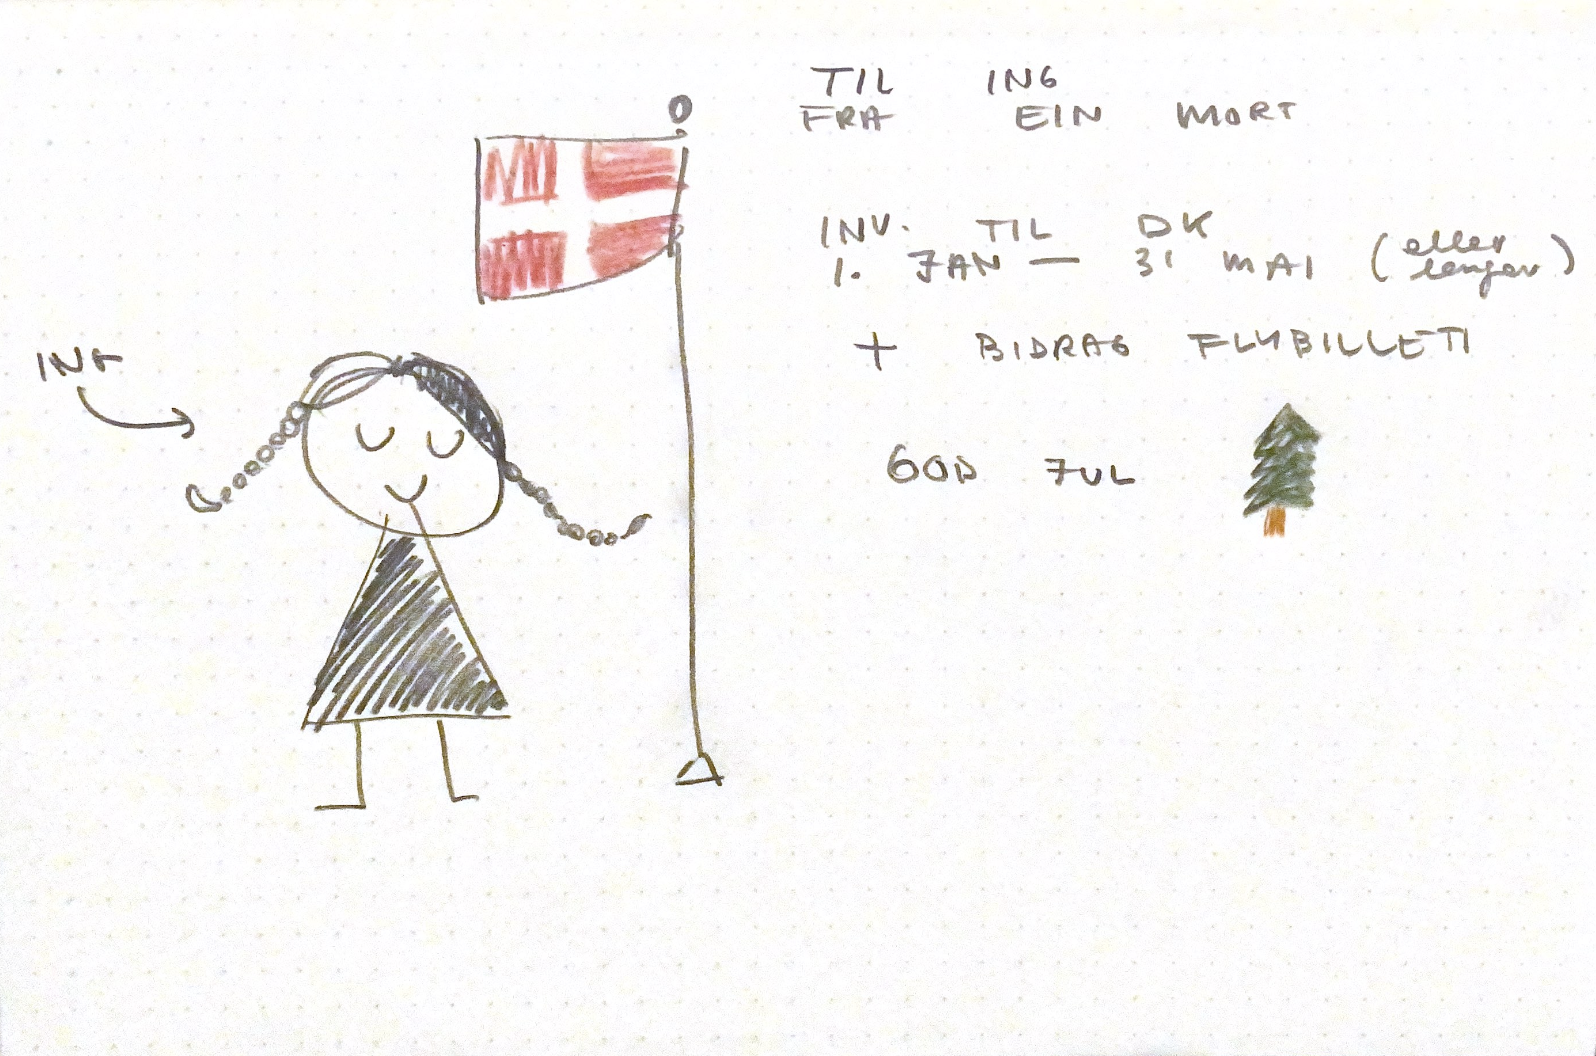 TIL ING
FRA EIN MORT
INV. TIL DK
1. JAN — 31 MAI (eller lenger)
+ BIDRAG FLYBILLETT
GOD JUL
ING